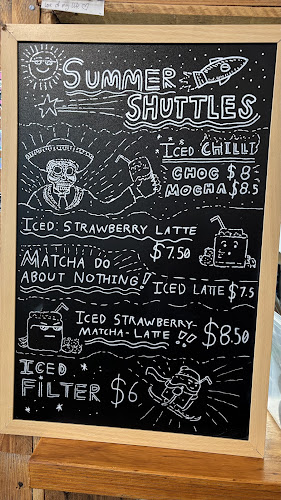 SUMMER
SHUTTLES
ICED CHILLI
CHOC $8
MOCHA $8.5
ICED STRAWBERRY LATTE
$7.50
MATCHA DO
ABOUT NOTHING!!
ICED LATTE $7.5
ICED STRAWBERRY-
MATCHA-LATTE !! $8.50
ICED
FILTER $6